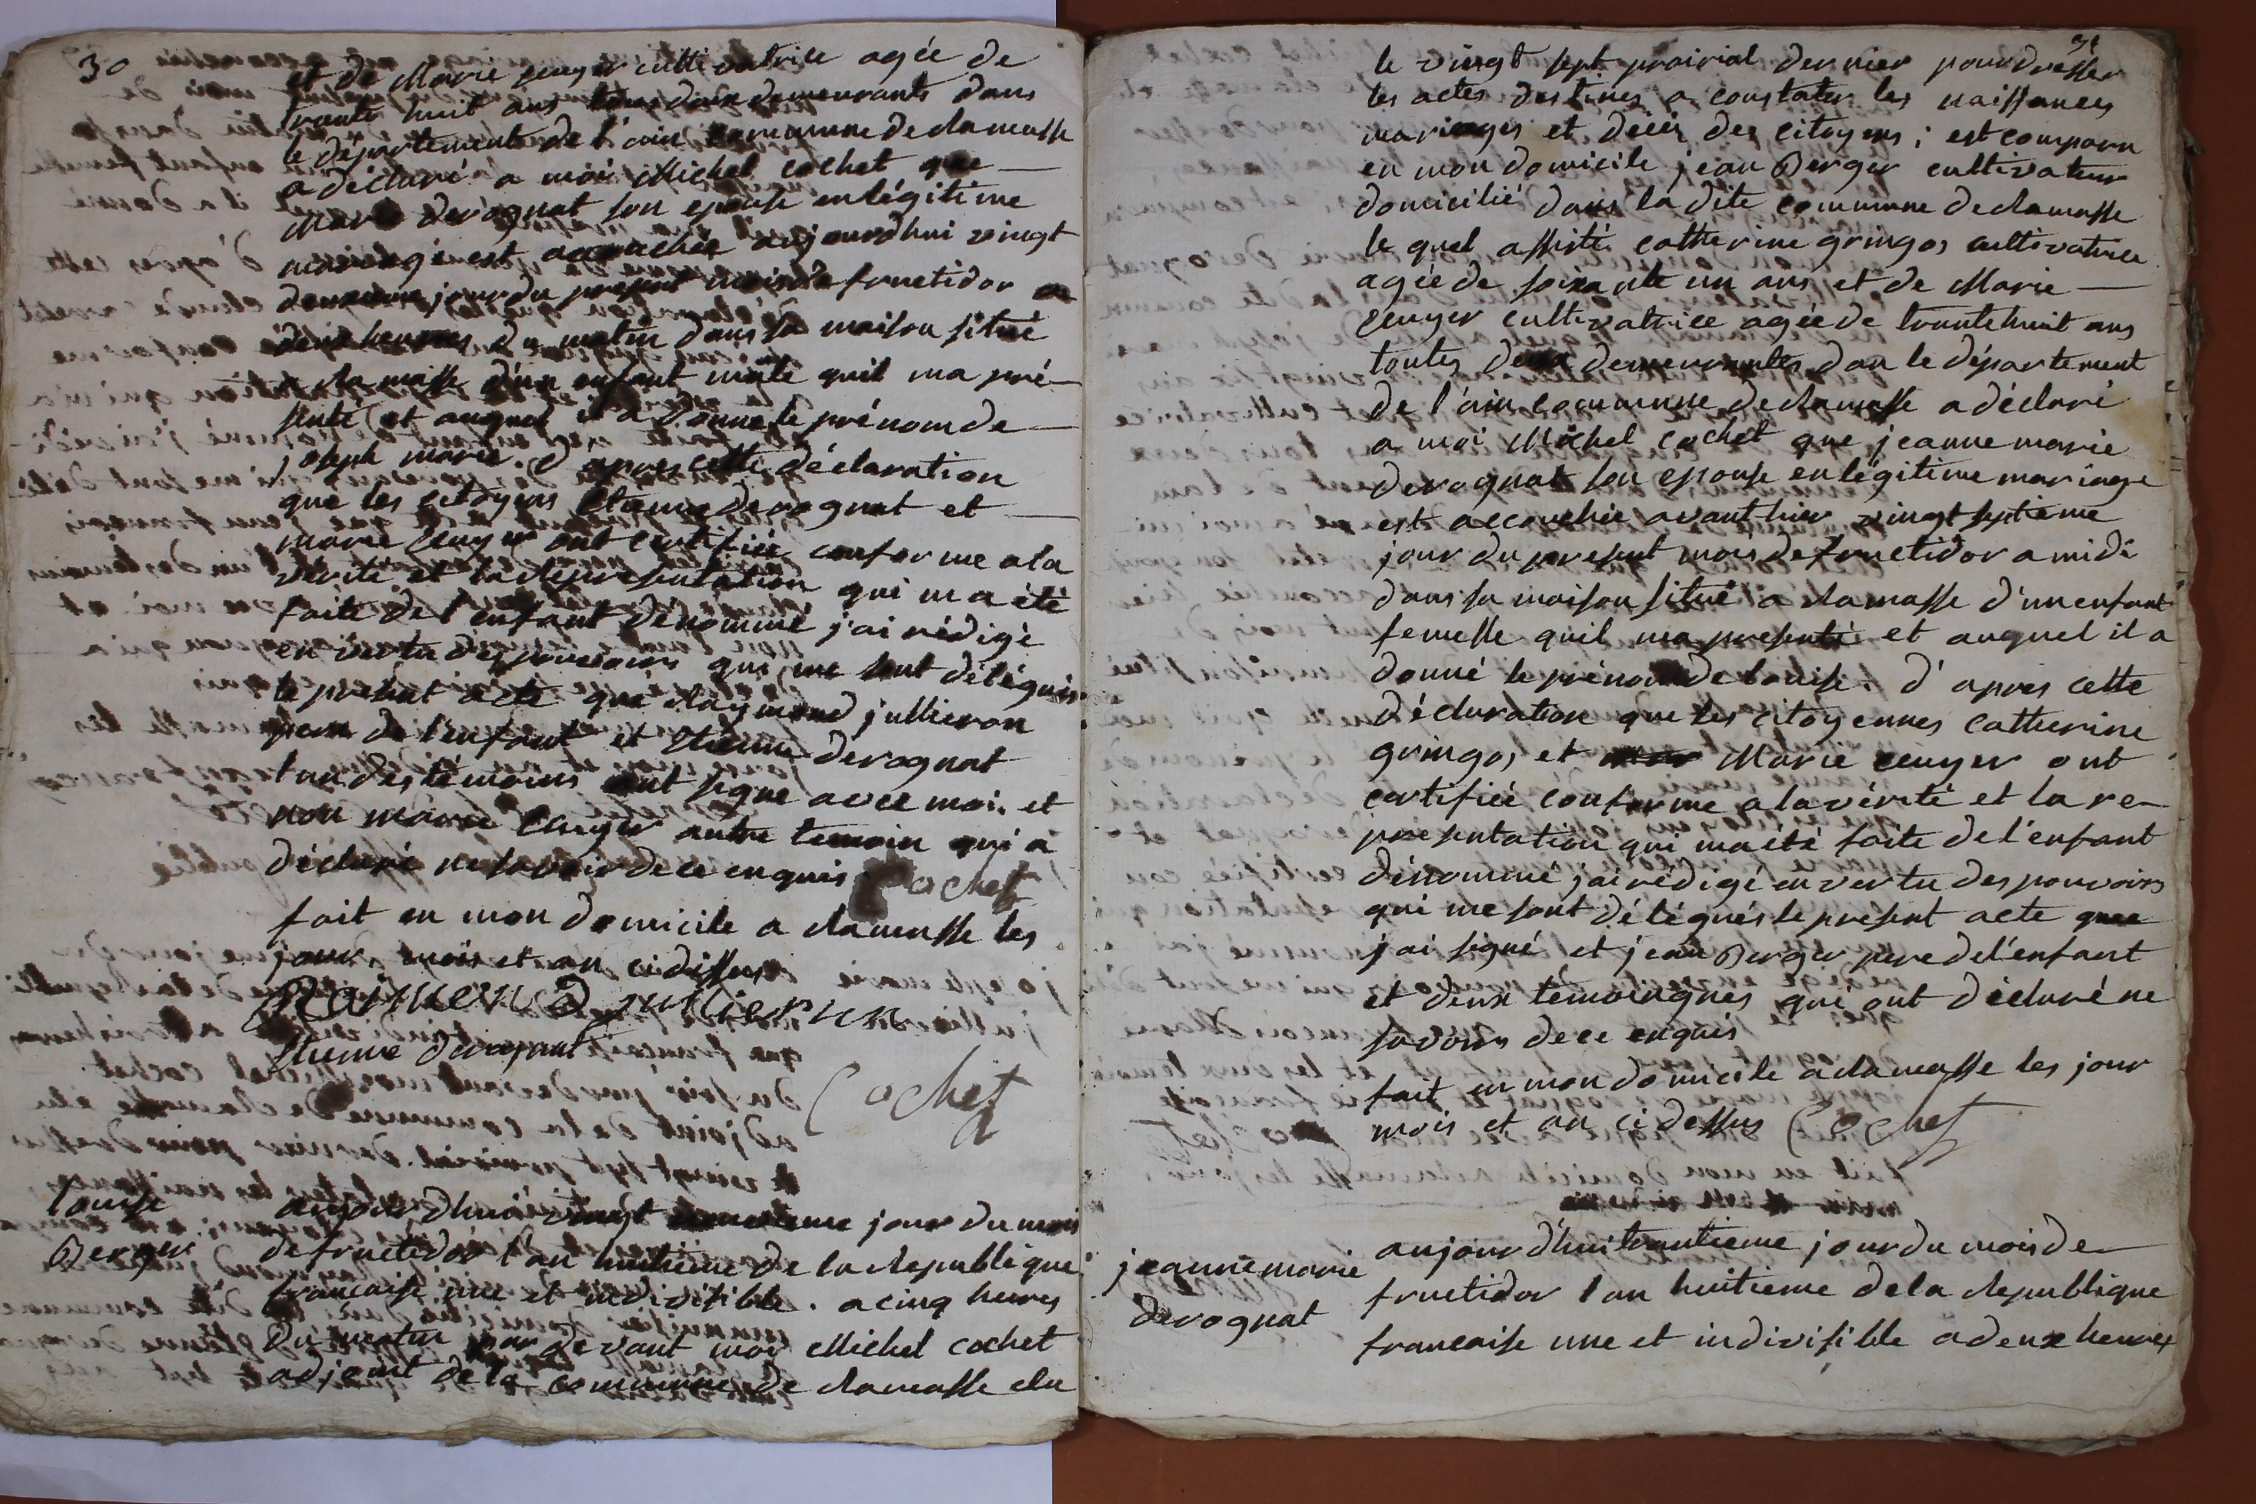 30
et de Marie cuyer cultivatrice agée de
trante huit ans tous deux demeurants dans
le département de l'ain commune de clamasse
a déclaré a moi Michel cochet que
Marie derognat son epouse en légitime
mariage est accouchée aujourdhui vingt
deuxieme jour du present mois de fructidor a
deux heures du matin dans sa maison situé
a clamasse d'un enfant mâle quil ma pré-
senté et auquel il a donné le prénom de
joseph marie. d'apres cette déclaration
que les citoyens Etienne derognat et
marie cuyer ont certifiée conforme a la
vérité et la representation qui ma été
faite de l'enfant dénommé j'ai rédigé
en vertu des pouvoirs qui me sont délégués
le present acte que Raymond jullieron
pere de l'enfant et Etienne derognat
l'un des temoins ont signé avec moi. et
non marie cuyer autre temoin qui a
déclaré ne savoir de ce enquis Cochet
fait en mon domicile a clamasse les
jour, mois et an ci dessus
Raimend jullierun
Etienne derognat
Cochet
louise
Berger
aujour dhui vingt neuvieme jour du mois
de fructidor l'an huitieme de la Republique
francaise une et indivisible. a cinq heures
du matin par devant moi Michel cochet
adjoint de la commune de clamasse elu
31
le vingt sept prairial dernier pour dresser
les actes destines a constater les naissances
mariages et décès des citoyens; est comparu
en mon domicile jean Berger cultivateur
domicilié dans la dite commune de clamasse
le quel assisté catherine gringos cultivatrice
agée de soixante un ans et de Marie
cuyer cultivatrice agée de trantehuit ans
toutes deux demeurantes dan le département
de l'ain commune de clamasse a déclaré
a moi Michel cochet que jeanne marie
derognat son epouse en légitime mariage
est accouchée avant hier vingt septieme
jour du present mois de fructidor a midi
dans sa maison situé a clamasse d'un enfant
femelle quil ma presenté et auquel il a
donné le prénom de louise. d'apres cette
déclaration que les citoyennes catherine
gringos et Marie cuyer ont
certifiée conforme a la vérité et la re-
presentation qui ma été faite de l'enfant
dénommé j'ai rédigé en vertu des pouvoirs
qui me sont délégués le present acte que
j'ai signé et jean Berger pere de l'enfant
et deux temoingnes qui ont déclaré ne
savoir de ce enquis
fait en mon domicile a clamasse les jour
mois et an ci dessus Cochet
jeanne marie
derognat
aujourd'hui trantieme jour du mois de
fructidor l'an huitieme de la Republique
francaise une et indivisible a deux heures